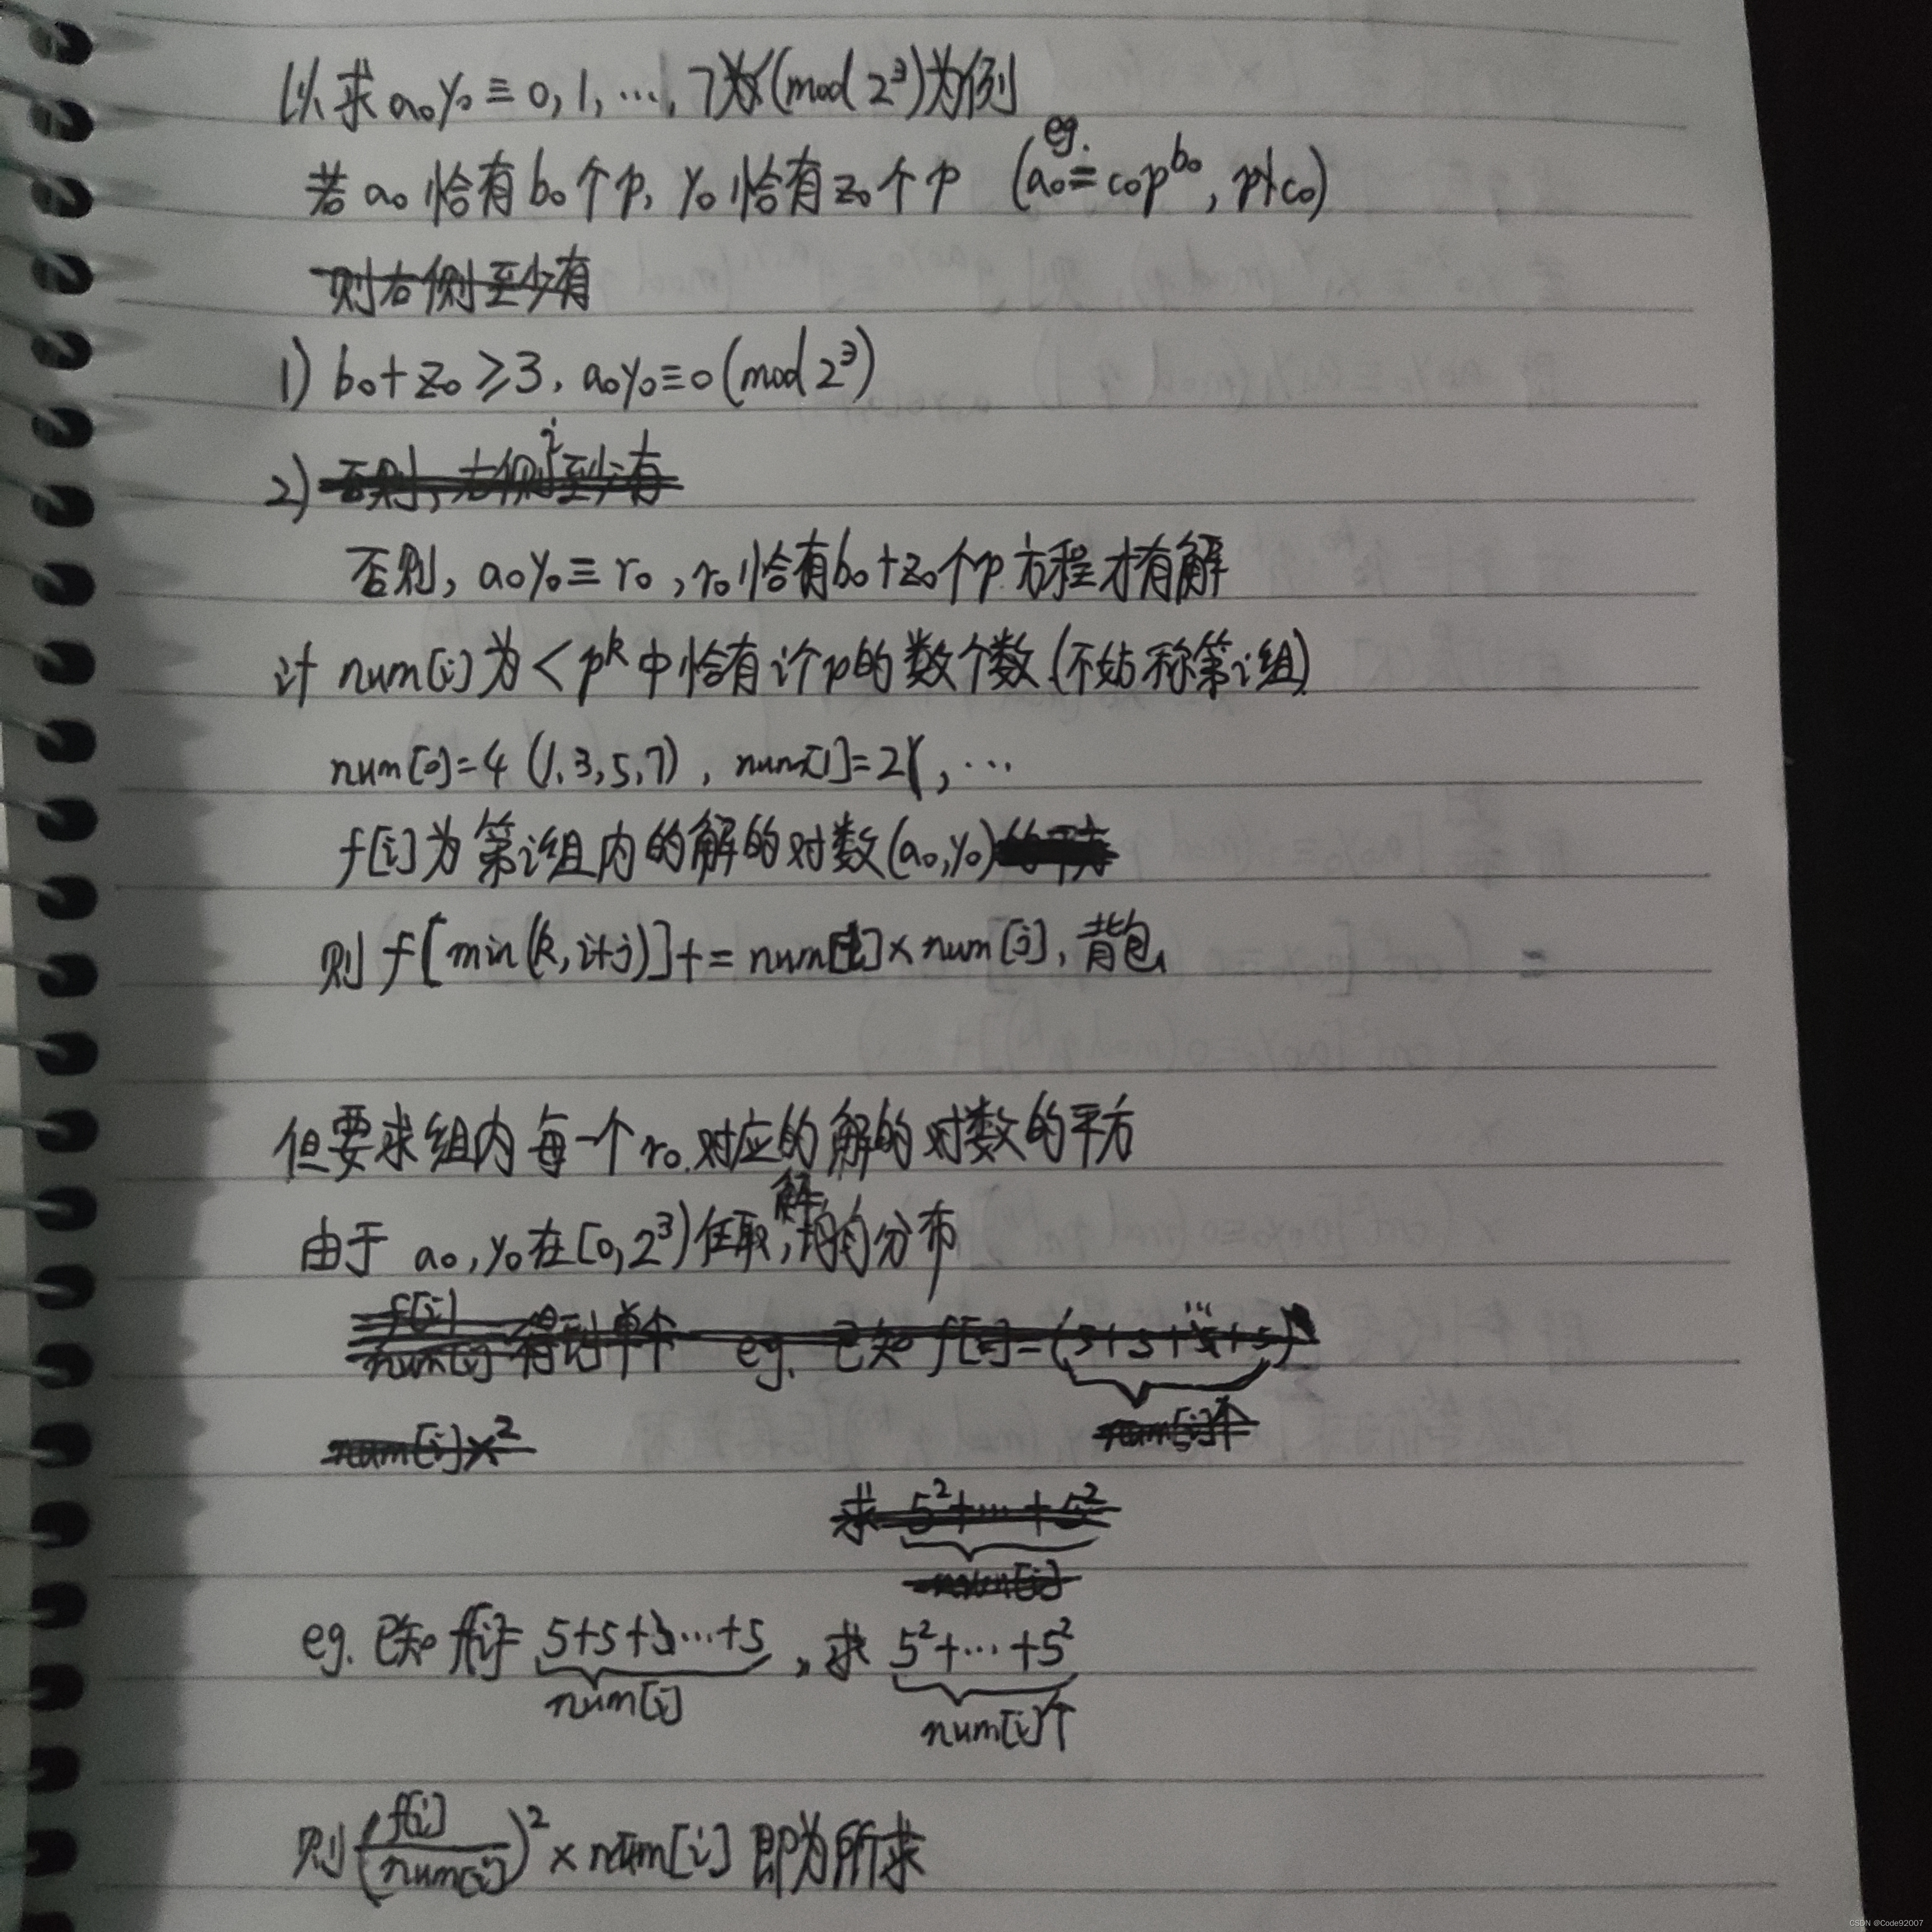 以求 a₀y₀ ≡ 0, 1, …, 7 (mod 2³)为例
若 a₀ 恰有 b₀ 个 p, y₀ 恰有 z₀ 个 p (eg. a₀ = c₀p^b₀, p∤c₀)
则右侧至少有
1) b₀+z₀ ≥3, a₀y₀≡0 (mod 2³)
2) 否则, 右侧至少有
否则, a₀y₀ ≡ r₀, r₀恰有b₀+z₀个p 方程才有解
计 num[i]为 < p^k 中恰有i个p的数个数 (不妨称第i组)
num[0]=4 (1,3,5,7), num[1]=2, …
f[i]为第i组内的解的对数(a₀,y₀)
则 f[min(k,i+j)]+= num[i]×num[j], 背包
但要求组内每一个 r₀ 对应的解的对数的平方
由于 a₀, y₀在[0,2³)任取, 解均匀分布
f[i]/num[i] 得到单个 eg. 已知 f[i]=(5+5+5+5)
num[i]x² num[i]个
求 5²+…+5²
num[i]
eg. 已知 f[i]= 5+5+5…+5, 求 5²+…+5²
num[i] num[i]个
则 (f[i]/num[i])² × num[i] 即为所求
CSDN @Code92007